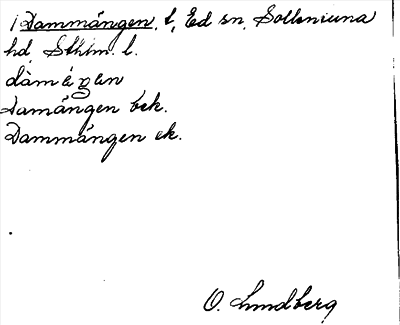 1 Dammängen, t, Ed sn, Sollentuna
hd, Sthlm. l.
Damängen bek.
Dammängen ek.
O. Lundberg